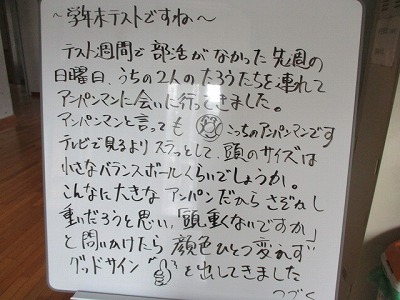 ~学年末テストですね~
テスト週間で部活がなかった先週の
日曜日、うちの2人のたろうたちを連れて
アンパンマンに会いに行ってきました。
アンパンマンと言っても こっちのアンパンマンです
テレビで見るよりスラッとして、頭のサイズは
小さなバランスボールくらいでしょうか。
こんなに大きなアンパンだからさぞかし
重いだろうと思い、「頭、重くないですか」
と問いかけたら顔色ひとつ変えず
グッドサイン" "を出してきました
つづく